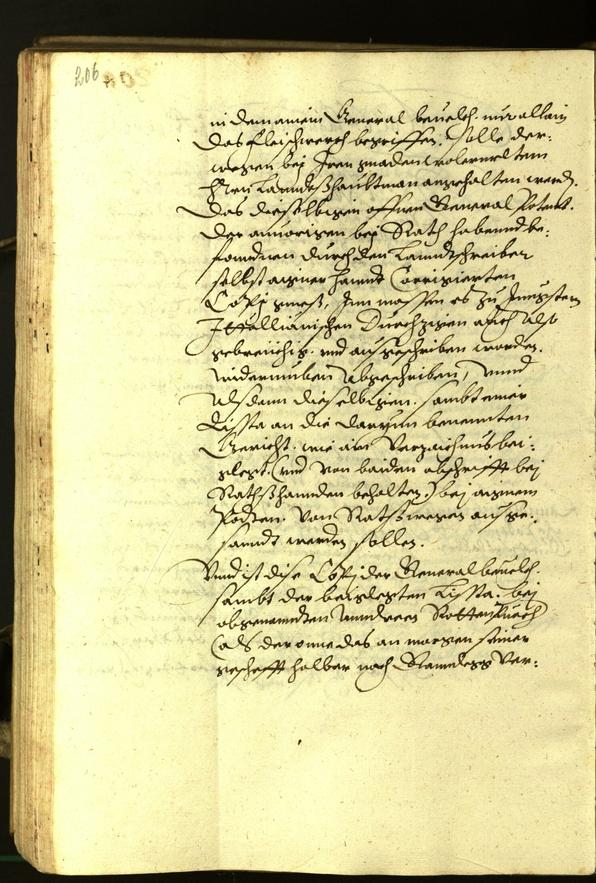 206
in dem ainem General beuelch nur allain
das fleischwerch begriffen. Solle der-
wegen bej Iren gnaden wolermeltem
Herrn Lanndtßhaubtman angehalten werden.
Das dieselbigen offnen General Patent.
der ainorigen bej Rath habennd be-
fonndnen durch den Lanndtschreiber
selbst aigner hanndt Corrigierten
Copj gmeß, Inn massen es zu Jungstem
Itallianischen Durchzigen auch also
gebreichig. vnd ausgeschriben worden.
widerumben abgeschriben, vnnd
alsdann dieselbigen. sambt einer
Lissta an die darynn benennten
Gericht. wie ain Verzaichnus bei-
gelegt. (vnd von baiden abschrifft bej
Rathßhannden behalten.) bej aignem
Podten. von Rathßwegen ausge-
sanndt werden sollen.
Vnnd ist dise Copj der General beuelch.
sambt der beigelegten Lissta. bej
obgenannten Anndreen Rottenpuech
(als der one das an morgen seiner
gescheft halber nach Ver-